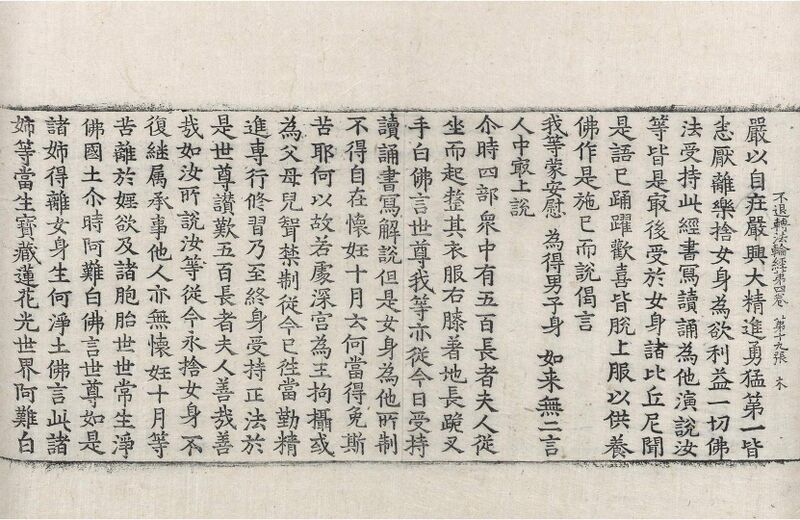 不退轉法輪經第四卷 第十九張 木
嚴以自在嚴興大精進勇猛第一皆
悉厭離樂捨女身為欲利益一切佛
法受持此經書寫讀誦為他演說汝
等皆是㝡後受於女身諸比丘尼聞
是語已踊躍歡喜皆脫上服以供養
佛作是施已而說偈言
我等蒙安慰 為得男子身 如来無二言
人中㝡上說
尒時四部衆中有五百長者夫人從
坐而起整其衣服右膝著地長跪叉
手白佛言世尊我等亦從今日受持
讀誦書寫解說但是女身為他所制
不得自在懷妊十月云何當得免斯
苦耶何以故若處深宮為王拘攝或
為父母兒聟禁制從今已徃當勤精
進專行修習乃至終身受持正法於
是世尊讃歎五百長者夫人善哉善
哉如汝所說汝等從今永捨女身不
復繼属承事他人亦無懷妊十月等
苦離於婬欲及諸胞胎世世常生淨
佛國土尒時阿難白佛言世尊如是
諸姉得離女身生何淨土佛言此諸
姉等當生寶藏蓮花光世界阿難白